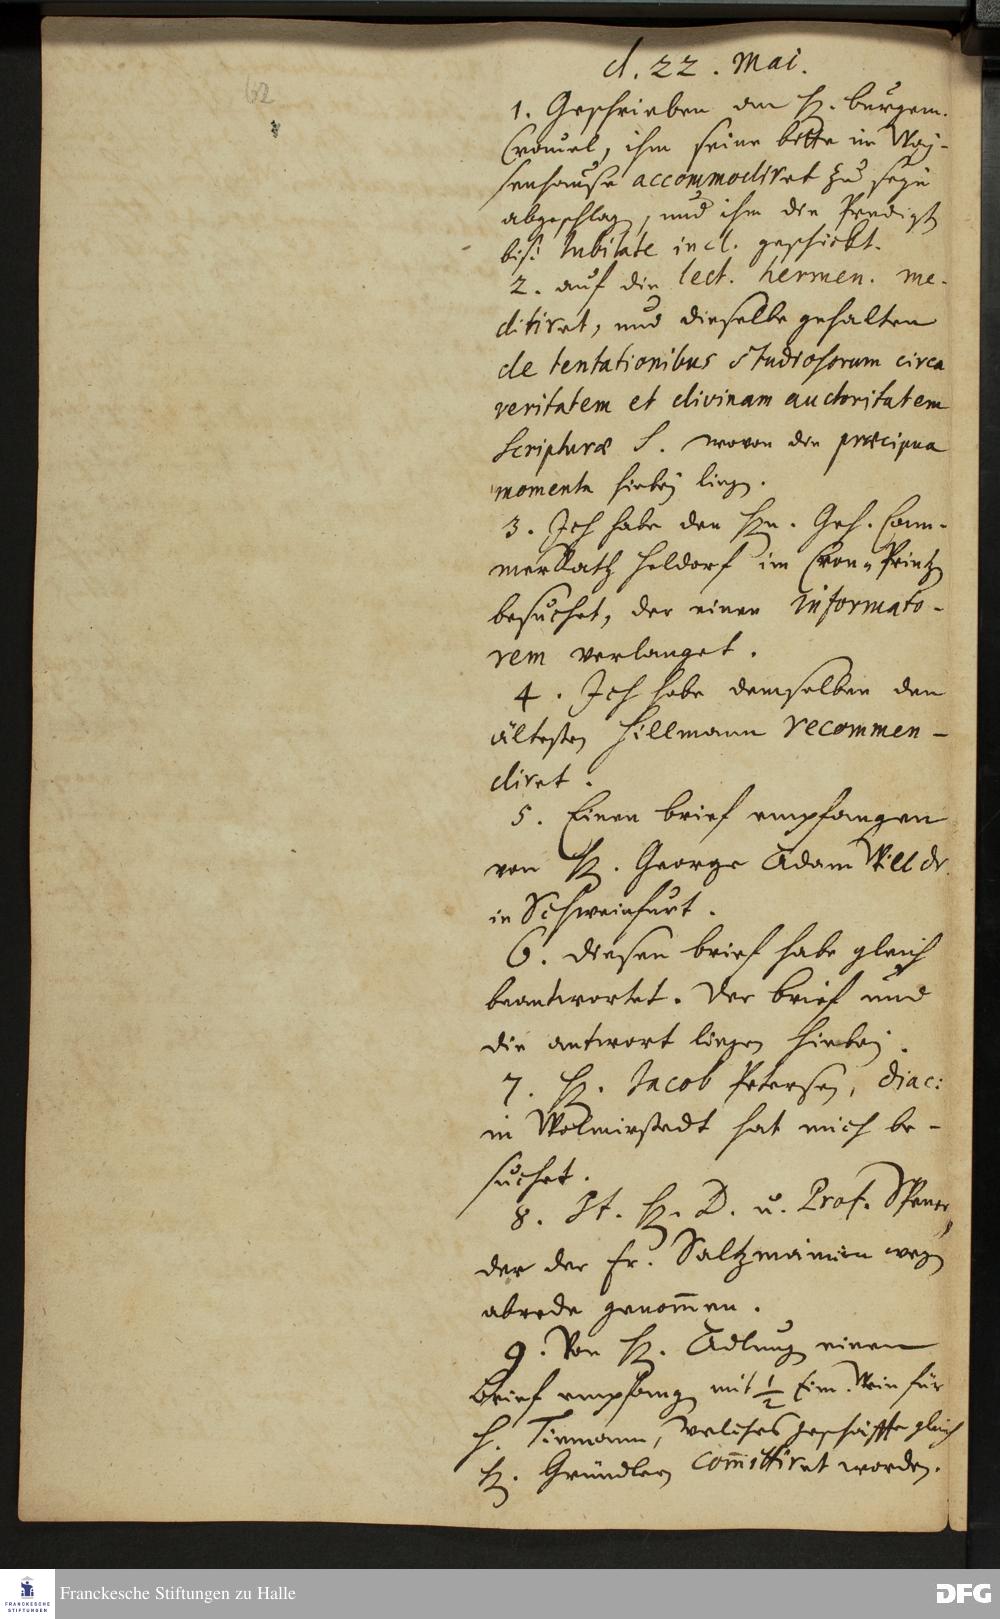 62
d. 22. Mai.
1. Geschrieben an H. burgem.
Cronel, ihm seine bitte im Way-
senhause accommodiret zu seyn
abgeschlag, und ihm die Predigt
biß Jubilate incl. geschickt.
2. auf die lect. hermen. me-
ditiret, und dieselbe gehalten
de tentationibus studiosorum circa
veritatem et divinam auctoritatem
Scripturæ S. wovon die præcipua
momenta hiebey lieg.
3. Ich habe den Hn. Geh. Cam-
merRath Heldorf im Cron-Printz
besuchet, der einen informato-
rem verlanget.
4. Ich habe demselben den
ältesten Hillmann recommen-
diret.
5. Einen brief empfangen
von H. George Adam
in Schweinfurt.
6. diesen brief habe gleich
beantwortet. der brief und
die antwort liegen hiebey.
7. H. Jacob Petersen, diac:
in Wolmirstedt hat mich be-
suchet.
8. It. H. D. u. Prof. Spener,
der der Fr. Saltzmännin weg
abrede genom̄en.
9. Von H. Adlung einen
brief empfang mit 1/2 Eim. Wein für
H. Tiemann, welches geschäffte gleich
H. Gründler com̄ittiret worden.
FRANCKESCHE
STIFTUNGEN
Franckesche Stiftungen zu Halle
DFG